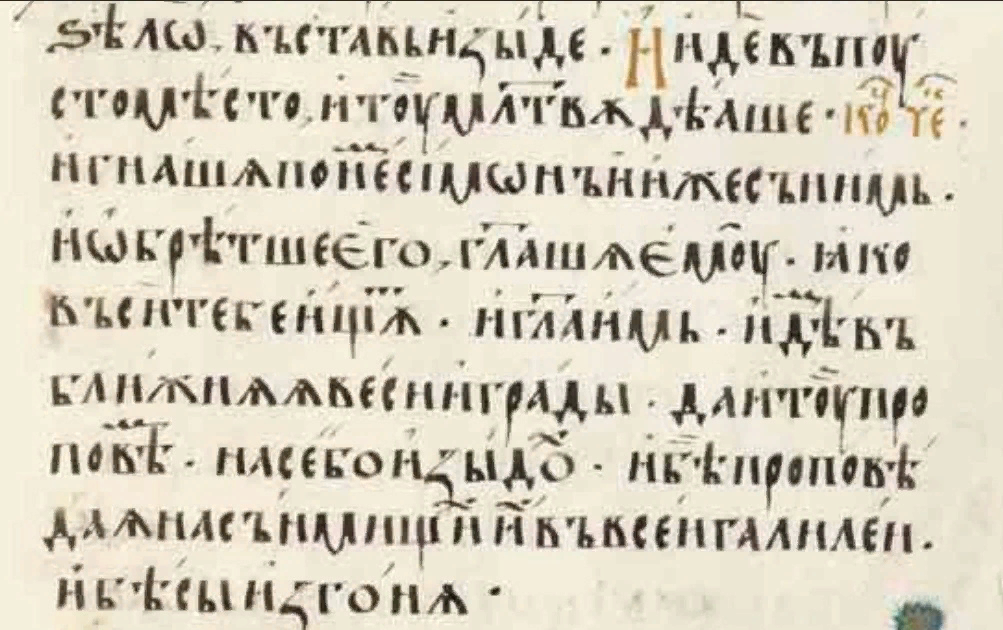 ѕѣлѡ, въставь и҆зы́де · И҆ и҆де въ поу
сто мѣсто, и҆ тоу мл҃твѫ дѣаше · ко҃ че҃ ·
и҆ гнашѧ по не҃ сімѡнъ и҆ иже съ нимь ·
и҆ ѡ҆брѣтше є҆го, гл҃ашѧ є҆моу · ꙗко
въси тебе и҆щіѫ · и҆ гл҃а и҆мь · и҆дѣ҃ въ
ближнѧѧ веси и҆ грады · да и҆ тоу про
повѣ҃ · на се бо и҆зыдо҃ · и҆ бѣ проповѣ
даѧ на сънмищи҃ и҃ въ всеи галилеи ·
и҆ бѣсы и҆згонѧ ·